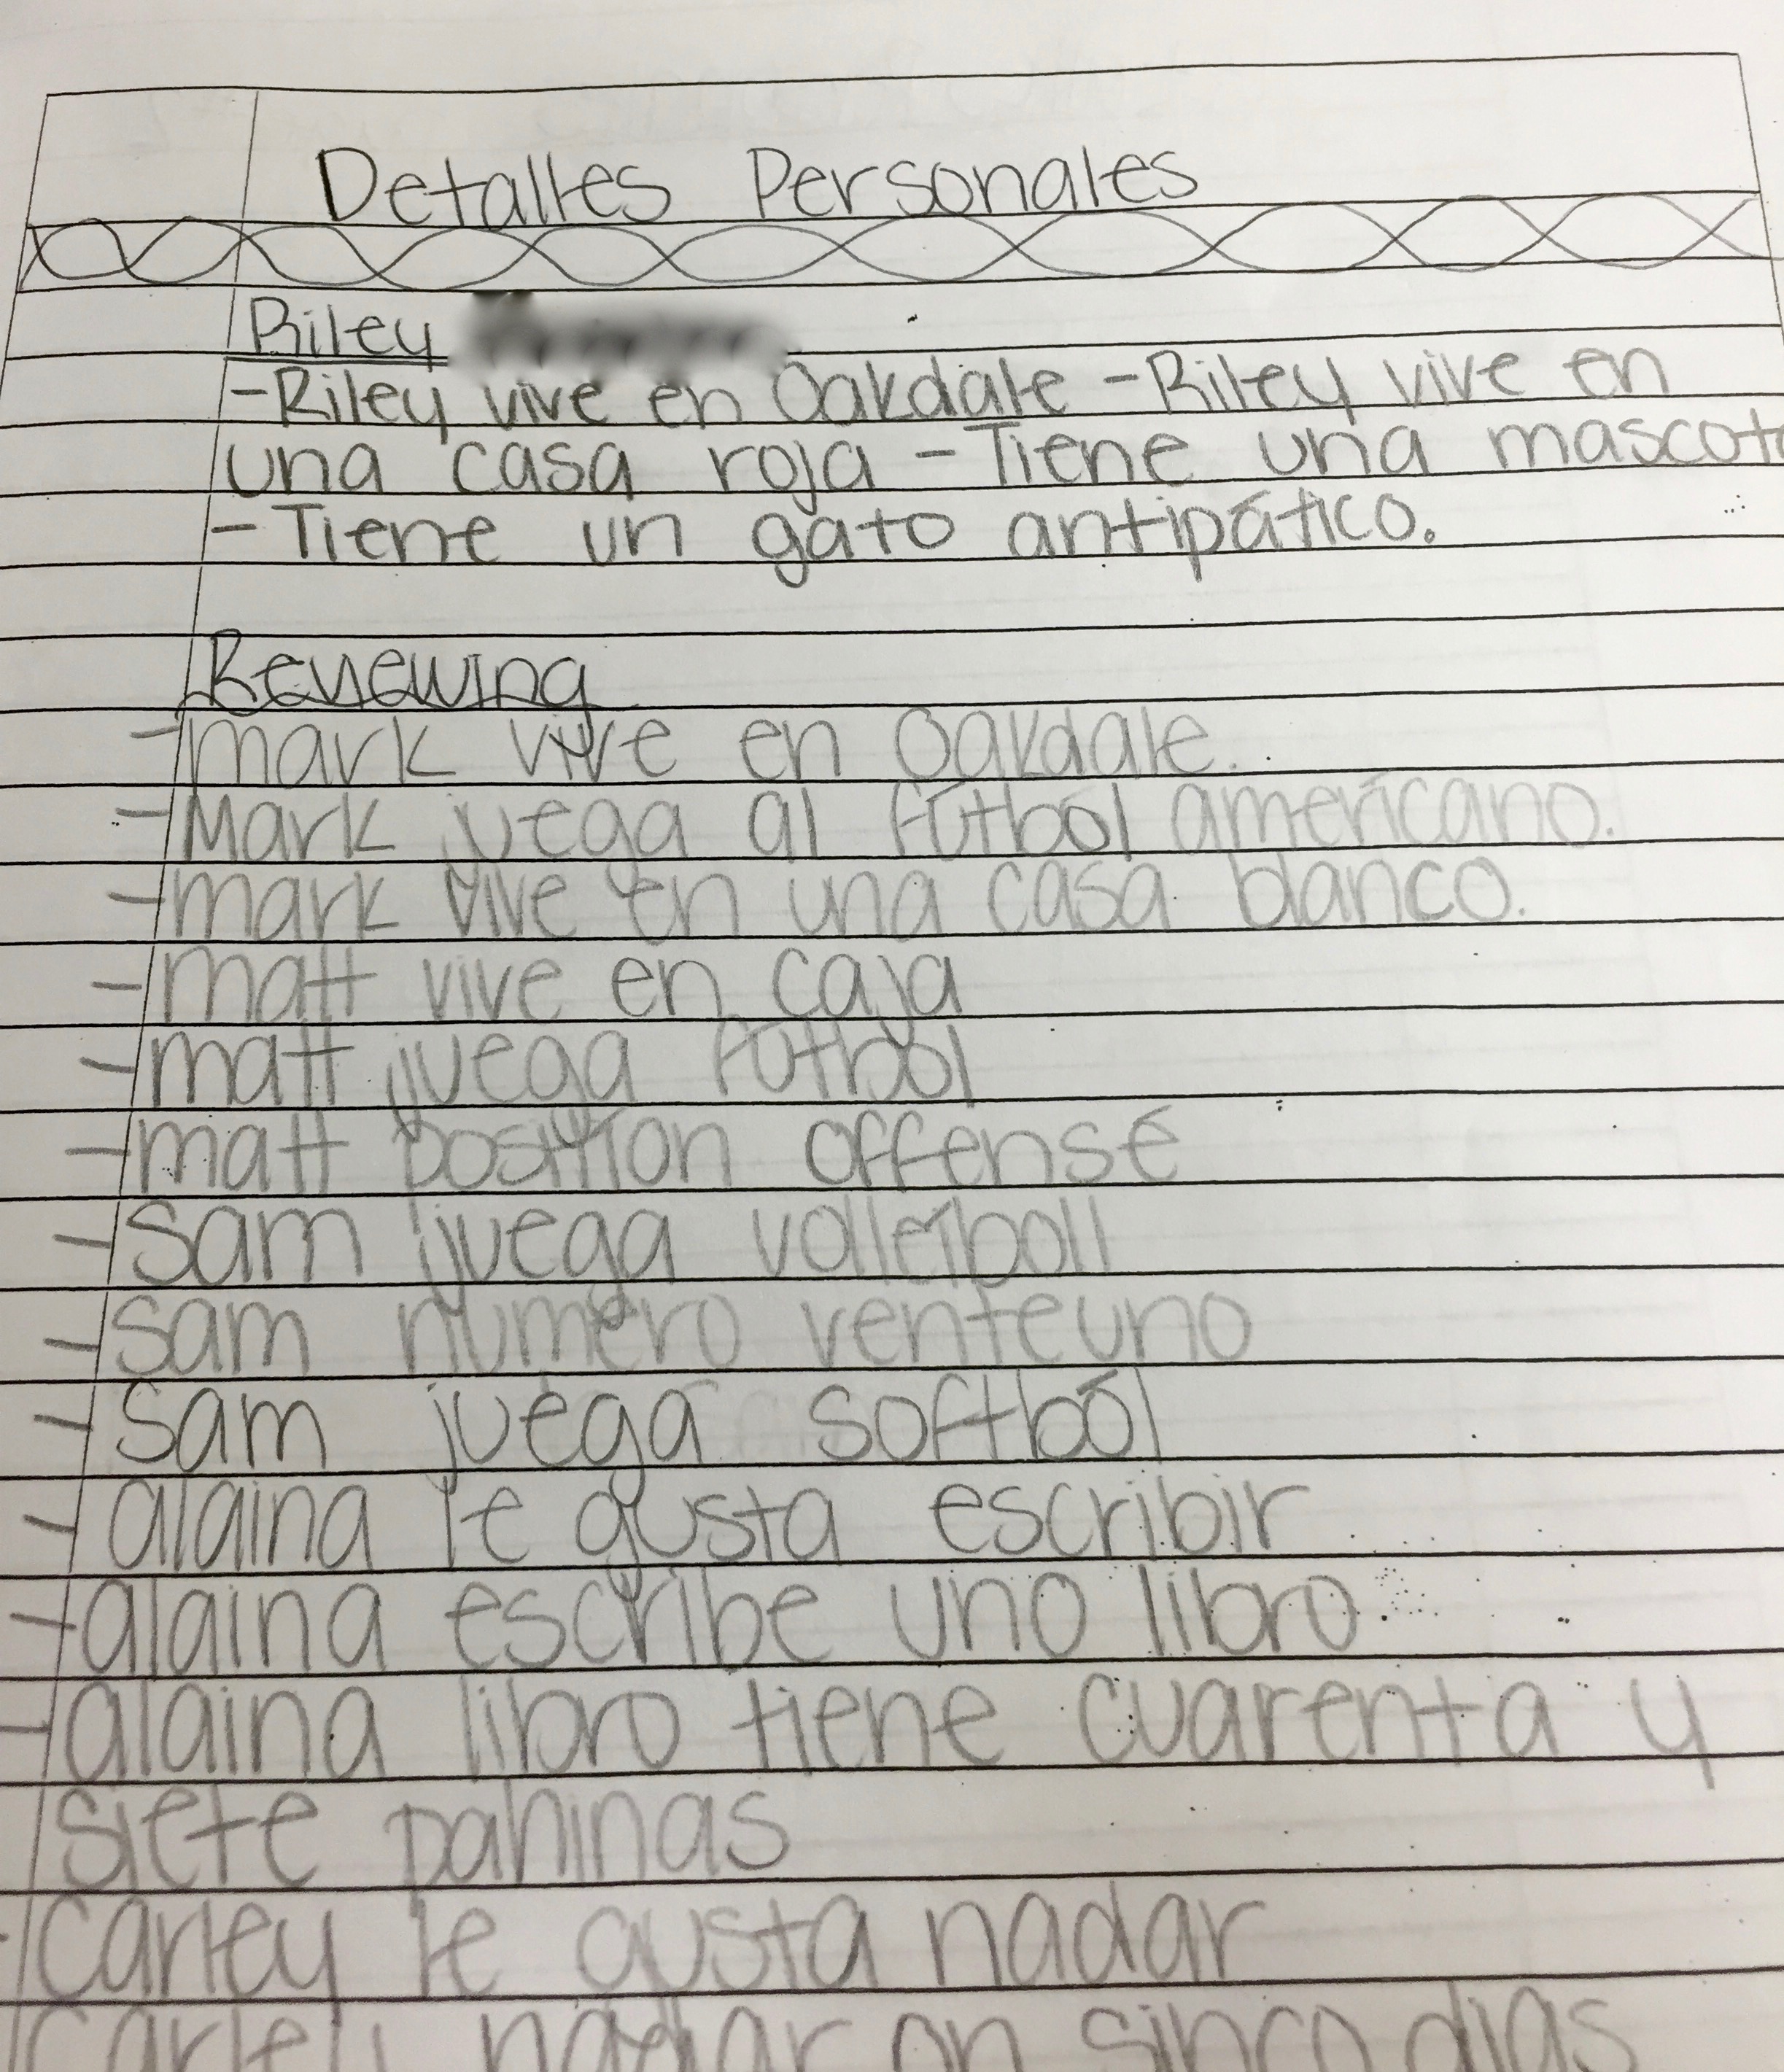 Detalles Personales
Riley
-Riley vive en Oakdale -Riley vive en
una casa roja -Tiene una mascota
-Tiene un gato antipático.
Reviewing
-mark vive en Oakdale.
-Mark juega al fútból américano.
-mark vive en una casa blanco.
-matt vive en caja
-matt juega fútbol
-matt position offense
-Sam juega volleiboll
-sam numero venteuno
-Sam juega softból
-alaina le gusta escribir
-alaina escribe uno libro
-alaina libro tiene cuarenta y
siete pahinas
-Carley le gusta nadar
Carley nadar on sinco dias